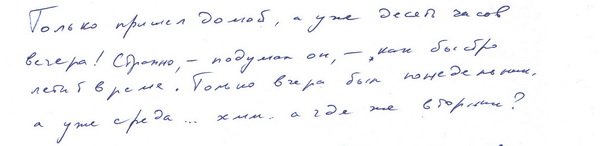 Только пришел домой, а уже десять часов
вечера! Странно, – подумал он, – как быстро
летит время. Только вчера был понедельник,
а уже среда... хмм. а где же вторник?